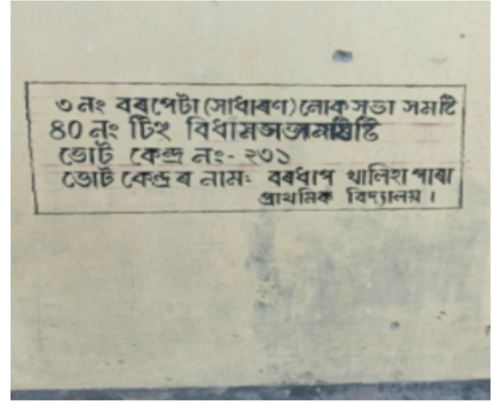 ৩ নং বৰপেটা (সাধাৰণ) লোক সভা সমষ্টি
৪০ নং টিহু বিধান সভা সমষ্টি
ভোট কেন্দ্ৰ নং- ২৩১
ভোট কেন্দ্ৰ ৰ নাম: বৰধাপ খালিহা পাৰা
প্ৰাথমিক বিদ্যালয় ।